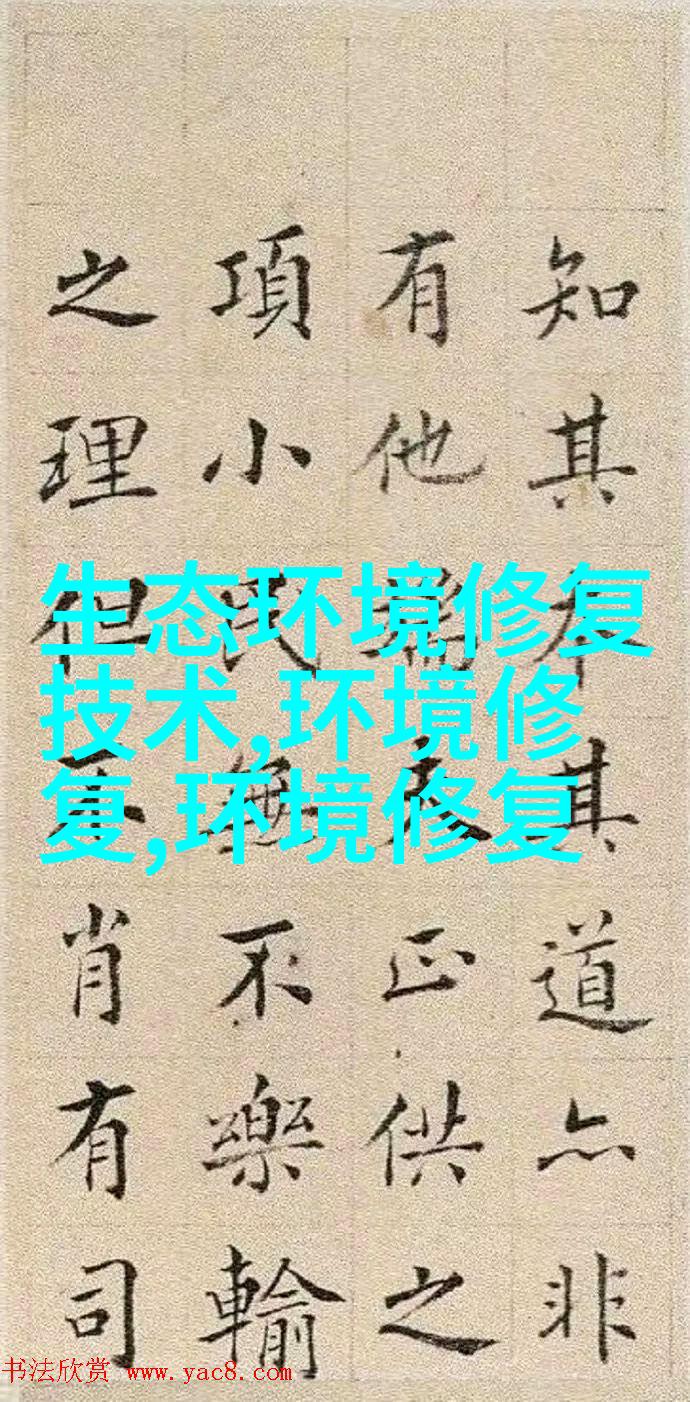 知其其道亦非
有他正供之
項小民無不樂輸
之理但不肖有司
生态环境修复
技术,环境修
复,环境修复
书法欣赏 www.yac8.com